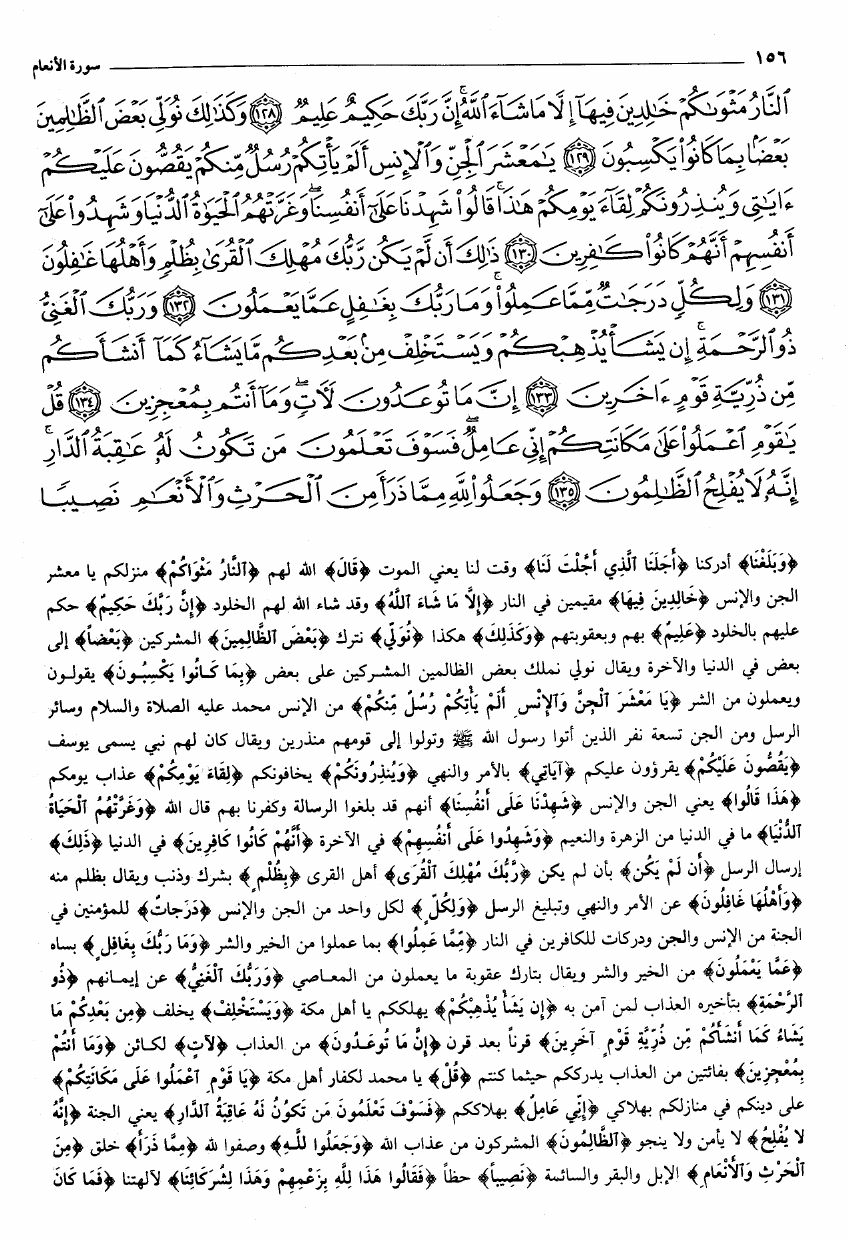 ١٥٦ سورة الأنعام
النَّارُ مَثْوَىٰكُمْ خَٰلِدِينَ فِيهَآ إِلَّا مَا شَآءَ ٱللَّهُ إِنَّ رَبَّكَ حَكِيمٌ عَلِيمٌ ﴿١٢٨﴾ وَكَذَٰلِكَ نُوَلِّى بَعْضَ ٱلظَّٰلِمِينَ
بَعْضًۢا بِمَا كَانُوا۟ يَكْسِبُونَ ﴿١٢٩﴾ يَٰمَعْشَرَ ٱلْجِنِّ وَٱلْإِنسِ أَلَمْ يَأْتِكُمْ رُسُلٌ مِّنكُمْ يَقُصُّونَ عَلَيْكُمْ
ءَايَٰتِى وَيُنذِرُونَكُمْ لِقَآءَ يَوْمِكُمْ هَٰذَا ۚ قَالُوا۟ شَهِدْنَا عَلَىٰٓ أَنفُسِنَا ۖ وَغَرَّتْهُمُ ٱلْحَيَوٰةُ ٱلدُّنْيَا وَشَهِدُوا۟ عَلَىٰٓ
أَنفُسِهِمْ أَنَّهُمْ كَانُوا۟ كَٰفِرِينَ ﴿١٣٠﴾ ذَٰلِكَ أَن لَّمْ يَكُن رَّبُّكَ مُهْلِكَ ٱلْقُرَىٰ بِظُلْمٍ وَأَهْلُهَا غَٰفِلُونَ
﴿١٣١﴾ وَلِكُلٍّ دَرَجَٰتٌ مِّمَّا عَمِلُوا۟ ۚ وَمَا رَبُّكَ بِغَٰفِلٍ عَمَّا يَعْمَلُونَ ﴿١٣٢﴾ وَرَبُّكَ ٱلْغَنِىُّ
ذُو ٱلرَّحْمَةِ ۚ إِن يَشَأْ يُذْهِبْكُمْ وَيَسْتَخْلِفْ مِنۢ بَعْدِكُم مَّا يَشَآءُ كَمَآ أَنشَأَكُم
مِّن ذُرِّيَّةِ قَوْمٍ ءَاخَرِينَ ﴿١٣٣﴾ إِنَّ مَا تُوعَدُونَ لَءَاتٍ ۖ وَمَآ أَنتُم بِمُعْجِزِينَ ﴿١٣٤﴾ قُلْ
يَٰقَوْمِ ٱعْمَلُوا۟ عَلَىٰ مَكَانَتِكُمْ إِنِّى عَامِلٌ ۖ فَسَوْفَ تَعْلَمُونَ مَن تَكُونُ لَهُۥ عَٰقِبَةُ ٱلدَّارِ ۗ
إِنَّهُۥ لَا يُفْلِحُ ٱلظَّٰلِمُونَ ﴿١٣٥﴾ وَجَعَلُوا۟ لِلَّهِ مِمَّا ذَرَأَ مِنَ ٱلْحَرْثِ وَٱلْأَنْعَٰمِ نَصِيبًا
﴿وَبَلَغْنَا﴾ أدركنا ﴿أَجَلَنَا ٱلَّذِي أَجَّلْتَ لَنَا﴾ وقت لنا يعني الموت ﴿قَالَ﴾ الله لهم ﴿ٱلنَّارُ مَثْوَاكُمْ﴾ منزلكم يا معشر
الجن والإنس ﴿خَالِدِينَ فِيهَا﴾ مقيمين في النار ﴿إِلَّا مَا شَاءَ ٱللَّهُ﴾ وقد شاء الله لهم الخلود ﴿إِنَّ رَبَّكَ حَكِيمٌ﴾ حكم
عليهم بالخلود ﴿عَلِيمٌ﴾ بهم وبعقوبتهم ﴿وَكَذَلِكَ﴾ هكذا ﴿نُوَلِّي﴾ نترك ﴿بَعْضَ ٱلظَّالِمِينَ﴾ المشركين ﴿بَعْضاً﴾ إلى
بعض في الدنيا والآخرة ويقال نولي نملك بعض الظالمين المشركين على بعض ﴿بِمَا كَانُوا يَكْسِبُونَ﴾ يقولون
ويعملون من الشر ﴿يَا مَعْشَرَ ٱلْجِنِّ وَٱلإِنْسِ أَلَمْ يَأْتِكُمْ رُسُلٌ مِّنكُمْ﴾ من الإنس محمد عليه الصلاة والسلام وسائر
الرسل ومن الجن تسعة نفر الذين أتوا رسول الله ﷺ وتولوا إلى قومهم منذرين ويقال كان لهم نبي يسمى يوسف
﴿يَقُصُّونَ عَلَيْكُمْ﴾ يقرؤون عليكم ﴿آيَاتِي﴾ بالأمر والنهي ﴿وَيُنذِرُونَكُمْ﴾ يخافونكم ﴿لِقَاءَ يَوْمِكُمْ﴾ عذاب يومكم
﴿هَذَا قَالُوا﴾ يعني الجن والإنس ﴿شَهِدْنَا عَلَى أَنفُسِنَا﴾ أنهم قد بلغوا الرسالة وكفرنا بهم قال الله ﴿وَغَرَّتْهُمُ ٱلْحَيَاةُ
ٱلدُّنْيَا﴾ ما في الدنيا من الزهرة والنعيم ﴿وَشَهِدُوا عَلَى أَنفُسِهِمْ﴾ في الآخرة ﴿أَنَّهُمْ كَانُوا كَافِرِينَ﴾ في الدنيا ﴿ذَلِكَ﴾
إرسال الرسل ﴿أَن لَمْ يَكُن﴾ بأن لم يكن ﴿رَّبُّكَ مُهْلِكَ ٱلْقُرَى﴾ أهل القرى ﴿بِظُلْمٍ﴾ بشرك وذنب ويقال بظلم منه
﴿وَأَهْلُهَا غَافِلُونَ﴾ عن الأمر والنهي وتبليغ الرسل ﴿وَلِكُلٍّ﴾ لكل واحد من الجن والإنس ﴿دَرَجَاتٌ﴾ للمؤمنين في
الجنة من الإنس والجن ودركات للكافرين في النار ﴿مِّمَّا عَمِلُوا﴾ بما عملوا من الخير والشر ﴿وَمَا رَبُّكَ بِغَافِلٍ﴾ بساه
﴿عَمَّا يَعْمَلُونَ﴾ من الخير والشر ويقال بتارك عقوبة ما يعملون من المعاصي ﴿وَرَبُّكَ ٱلْغَنِيُّ﴾ عن إيمانهم ﴿ذُو
ٱلرَّحْمَةِ﴾ بتأخيره العذاب لمن آمن به ﴿إِن يَشَأْ يُذْهِبْكُمْ﴾ يهلككم يا أهل مكة ﴿وَيَسْتَخْلِفْ﴾ يخلف ﴿مِن بَعْدِكُمْ مَا
يَشَاءُ كَمَا أَنشَأَكُمْ مِّن ذُرِّيَّةِ قَوْمٍ آخَرِينَ﴾ قرناً بعد قرن ﴿إِنَّ مَا تُوعَدُونَ﴾ من العذاب ﴿لآتٍ﴾ لكائن ﴿وَمَا أَنتُمْ
بِمُعْجِزِينَ﴾ بفائتين من العذاب يدرككم حيثما كنتم ﴿قُلْ﴾ يا محمد لكفار أهل مكة ﴿يَا قَوْمِ ٱعْمَلُوا عَلَى مَكَانَتِكُمْ﴾
على دينكم في منازلكم بهلاكي ﴿إِنِّي عَامِلٌ﴾ بهلاككم ﴿فَسَوْفَ تَعْلَمُونَ مَن تَكُونُ لَهُ عَاقِبَةُ ٱلدَّارِ﴾ يعني الجنة ﴿إِنَّهُ
لا يُفْلِحُ﴾ لا يأمن ولا ينجو ﴿ٱلظَّالِمُونَ﴾ المشركون من عذاب الله ﴿وَجَعَلُوا لِلَّهِ﴾ وصفوا لله ﴿مِمَّا ذَرَأَ﴾ خلق ﴿مِنَ
ٱلْحَرْثِ وَٱلأَنْعَامِ﴾ الإبل والبقر والسائمة ﴿نَصِيباً﴾ حظاً ﴿فَقَالُوا هَذَا لِلَّهِ بِزَعْمِهِمْ وَهَذَا لِشُرَكَائِنَا﴾ لآلهتنا ﴿فَمَا كَانَ